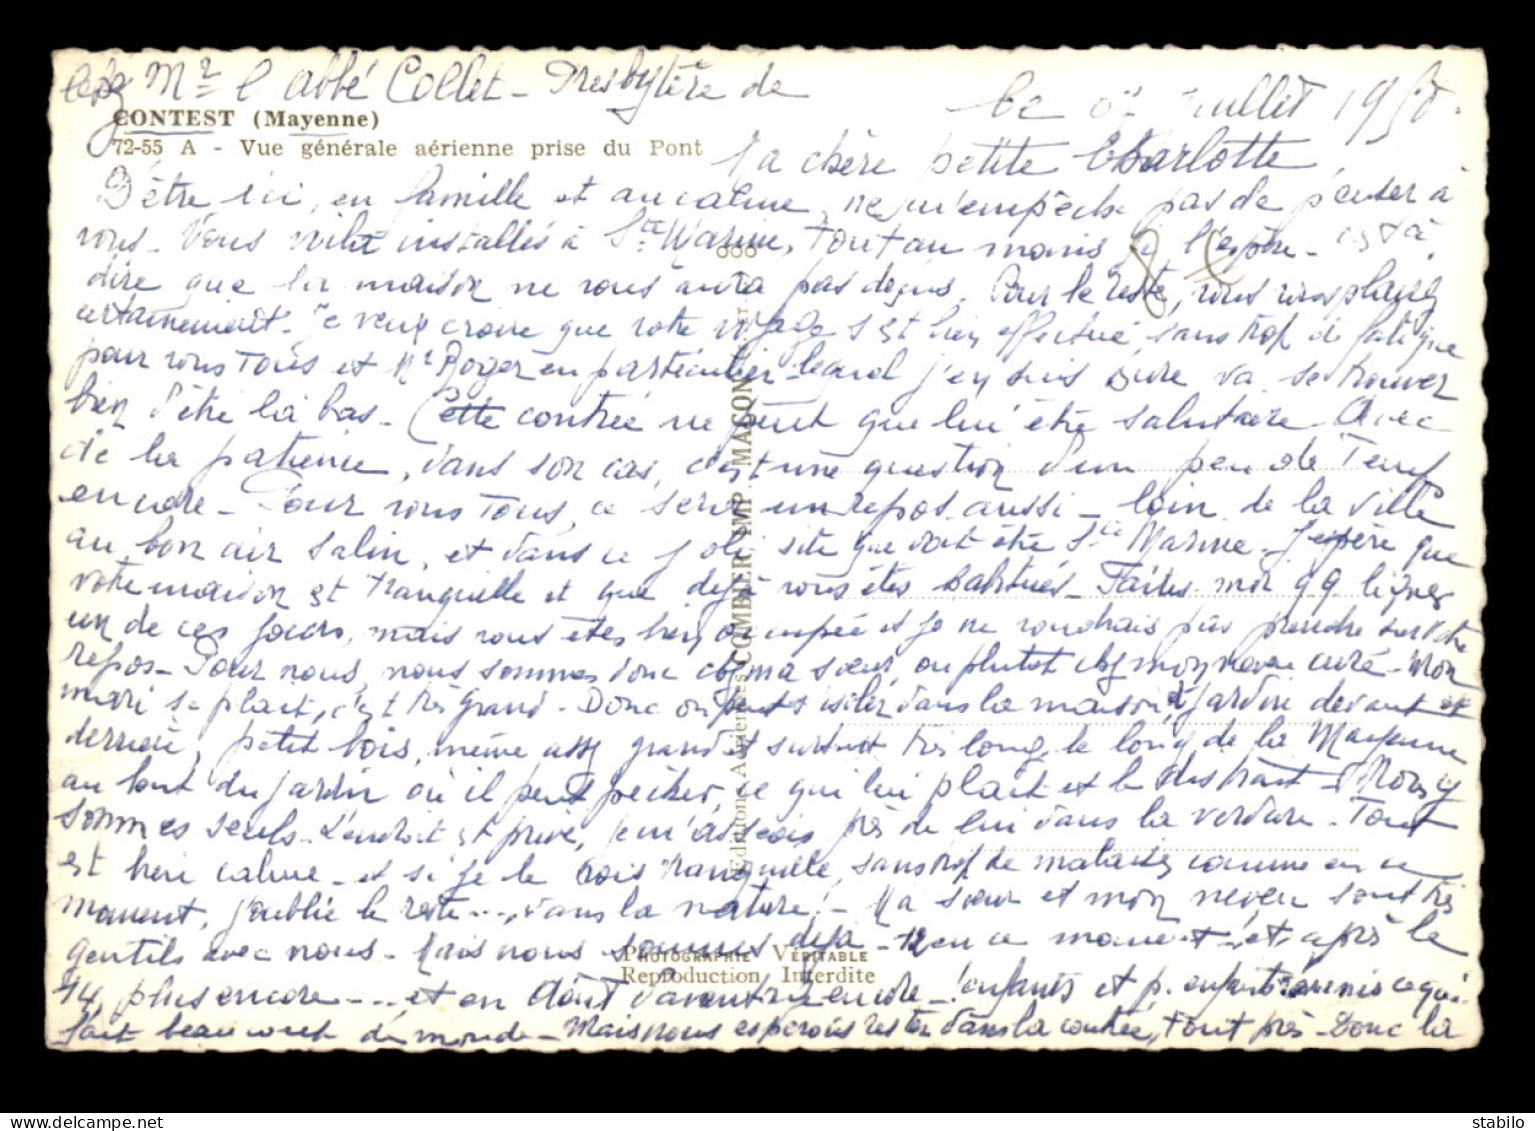 chez Mr l'abbé Collet - Presbytère de
CONTEST (Mayenne)
72-55 A - Vue générale aérienne prise du Pont
Le juillet 195
Ma chère petite Charlotte
D'être ici, en famille et au calme, ne m'empêche pas de penser à
vous. Vous voilà installés à Ste Marine, tout au moins je l'espère - c'est à
dire que la maison ne vous aura pas déçus. Pour le reste, vous vous plairez
certainement. Je veux croire que votre voyage s'est bien effectué, sans trop de fatigue
pour vous tous et Mr Roger en particulier - lequel j'en suis sûre va se trouver
bien d'être là bas - Cette contrée ne peut que lui être salutaire. Avec
de la patience, dans son cas, c'est une question d'un peu de temps
encore - Pour vous tous, ce sera un repos aussi - loin de la ville
au bon air salin, et dans ce joli site que doit être Ste Marine. J'espère que
votre maison est tranquille et que déjà vous êtes habitués - Faites moi qq lignes
un de ces jours, mais vous êtes bien occupée et je ne voudrais pas prendre sur votre
repos - Pour nous, nous sommes donc chez ma sœur, ou plutôt chez mon neveu curé - Mon
mari se plait, c'est très grand - Donc on peut s'isoler dans la maison, jardin devant et
derrière, petit bois, même assez grand et surtout très long, le long de la Mayenne
au bout du jardin où il peut pêcher, ce qui lui plait et le distrait - Nous y
sommes seuls - L'endroit est privé, je m'asseois près de lui dans la verdure - Tout
est bien calme - et si je le vois tranquille, sans trop de malaises comme en ce
moment, j'oublie le reste..., dans la nature! - Ma sœur et mon neveu sont très
gentils avec nous - Mais nous sommes déjà - 12 en ce moment - et après le
14, plus encore - ... et en Août davantage encore - enfants et p. enfants ce qui
fait beaucoup de monde - Mais nous espérons rester dans la contrée, tout près - Donc la
8 €
PHOTOGRAPHIE VÉRITABLE
Reproduction Interdite
Editions Aériennes COMBIER IMP. MACON